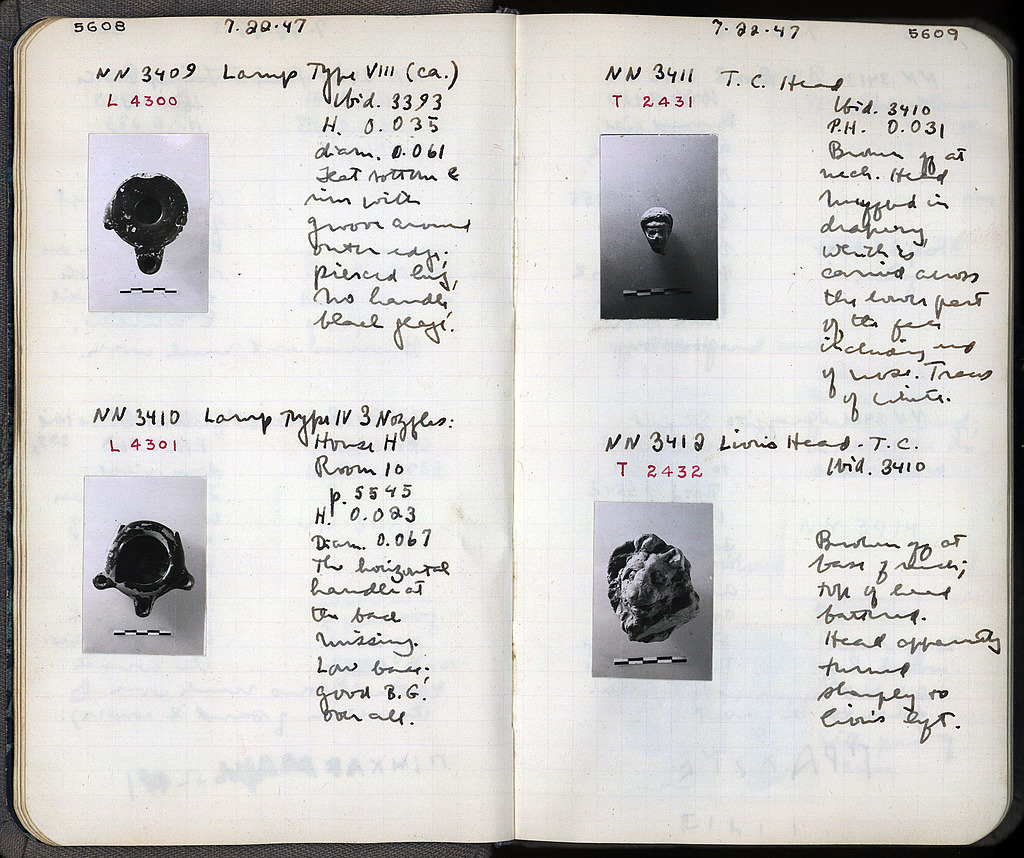 5608
7.22.47
NN 3409 Lamp Type VIII (ca.)
L 4300
Ibid. 3393
H. 0.035
diam. 0.061
Flat bottom &
rim with
groove around
outer edge;
pierced lug,
No handle,
black glaze.
NN 3410 Lamp Type IV 3 Nozzles:
L 4301
House H
Room 10
p. 5545
H. 0.023
Diam. 0.067
The horizontal
handle at
the back
missing.
Low base;
good B.G.
over all.
7.22.47
5609
NN 3411 T.C. Head
T 2431
Ibid. 3410
P.H. 0.031
Broken off at
neck. Head
muffled in
drapery,
which is
carried across
the lower part
of the face
including end
of nose. Traces
of white.
NN 3412 Lion's Head - T.C.
T 2432
Ibid. 3410
Broken off at
base of neck;
top of head
battered.
Head apparently
turned
sharply to
lion's left.